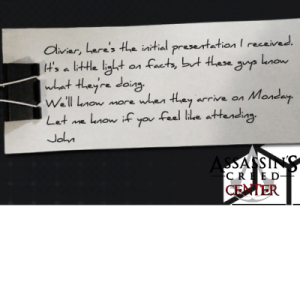 Olivier, here's the initial presentation I received.
It's a little light on facts, but these guys know
what they're doing.
We'll know more when they arrive on Monday.
Let me know if you feel like attending.
John
ASSASSIN'S
CREED
CENTER